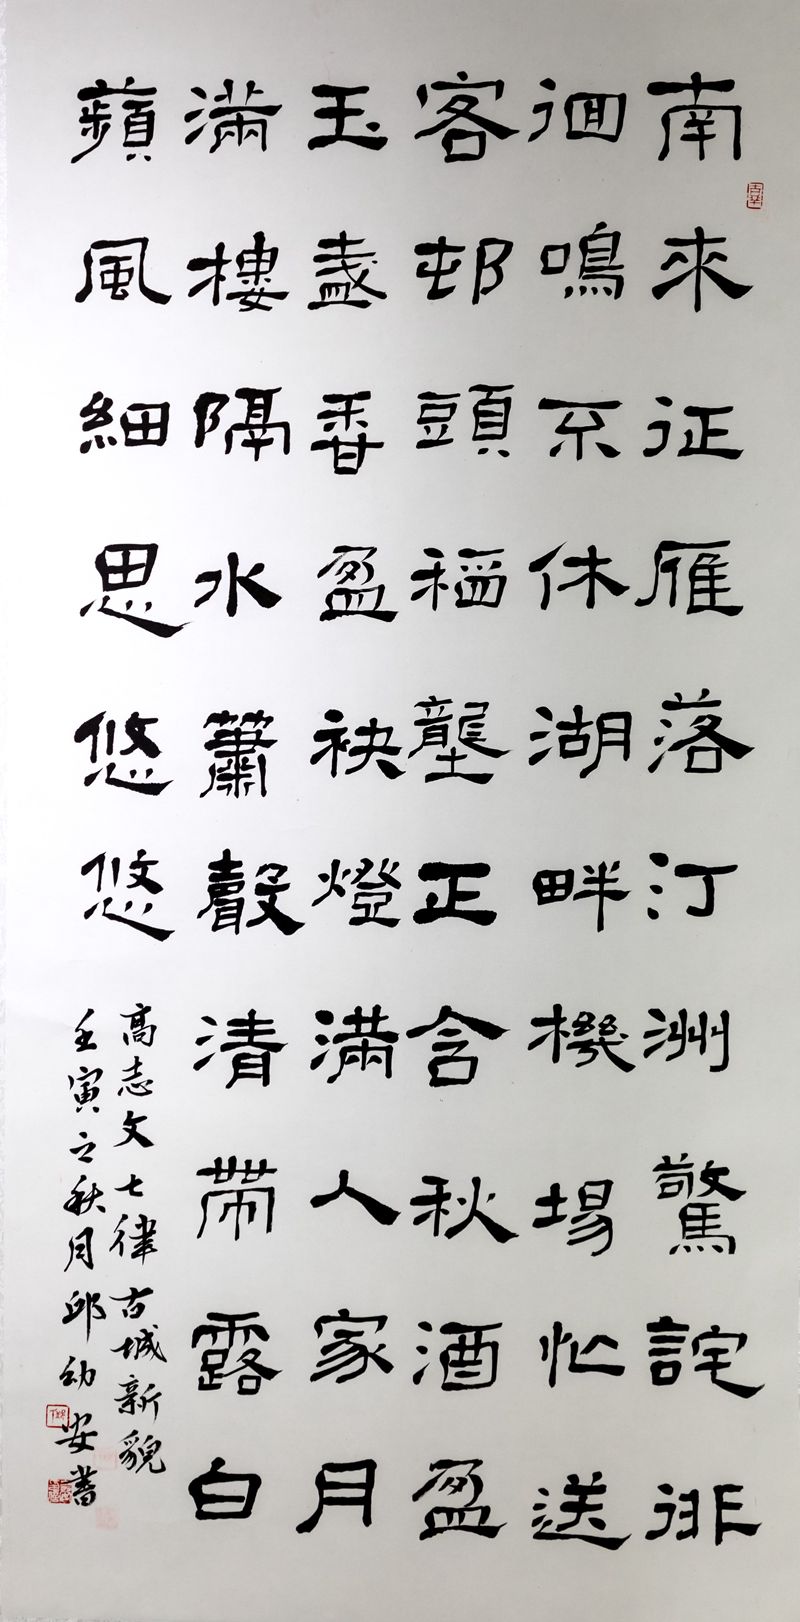 南來征雁落汀洲驚詫徘
徊鳴不休湖畔機場忙送
客邨頭稻壟正含秋酒盈
玉盞香盈袂燈滿人家月
滿樓隔水簫聲清帶露白
蘋風細思悠悠
高志文七律古城新貌
壬寅之秋月邱幼安書